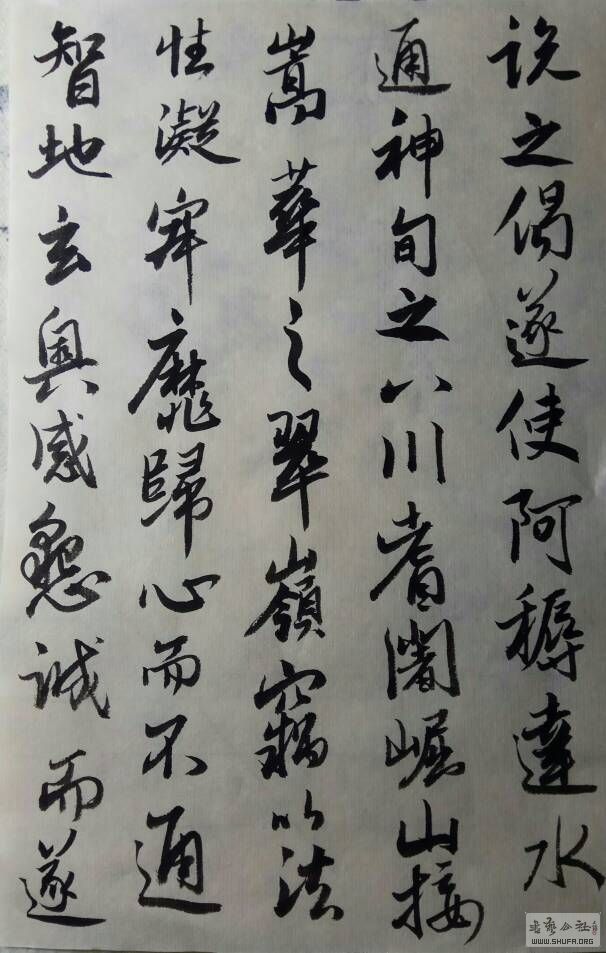 説之偈遂使阿耨達水
通神旬之八川耆闍崛山接
嵩華之翠嶺竊以法
性凝寂靡歸心而不通
智地玄奧感懇誠而遂
書藝公社
WWW.SHUFA.ORG